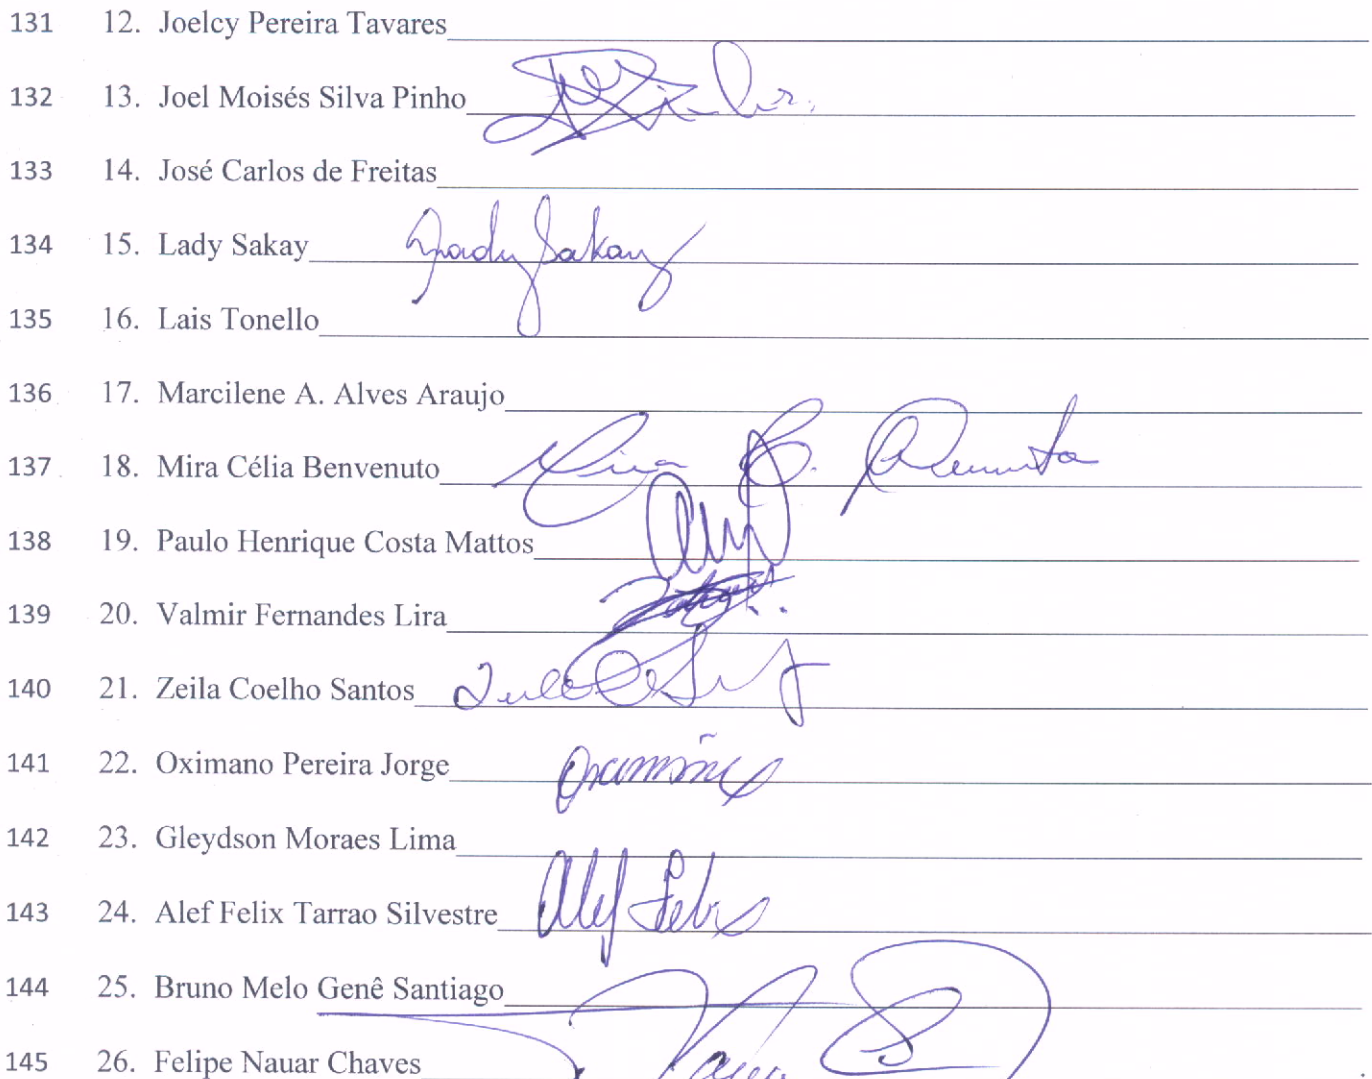 131 12. Joelcy Pereira Tavares
132 13. Joel Moisés Silva Pinho
133 14. José Carlos de Freitas
134 15. Lady Sakay Lady Sakay
135 16. Lais Tonello
136 17. Marcilene A. Alves Araujo
137 18. Mira Célia Benvenuto
138 19. Paulo Henrique Costa Mattos
139 20. Valmir Fernandes Lira
140 21. Zeila Coelho Santos
141 22. Oximano Pereira Jorge
142 23. Gleydson Moraes Lima
143 24. Alef Felix Tarrao Silvestre Alef Felix
144 25. Bruno Melo Genê Santiago
145 26. Felipe Nauar Chaves